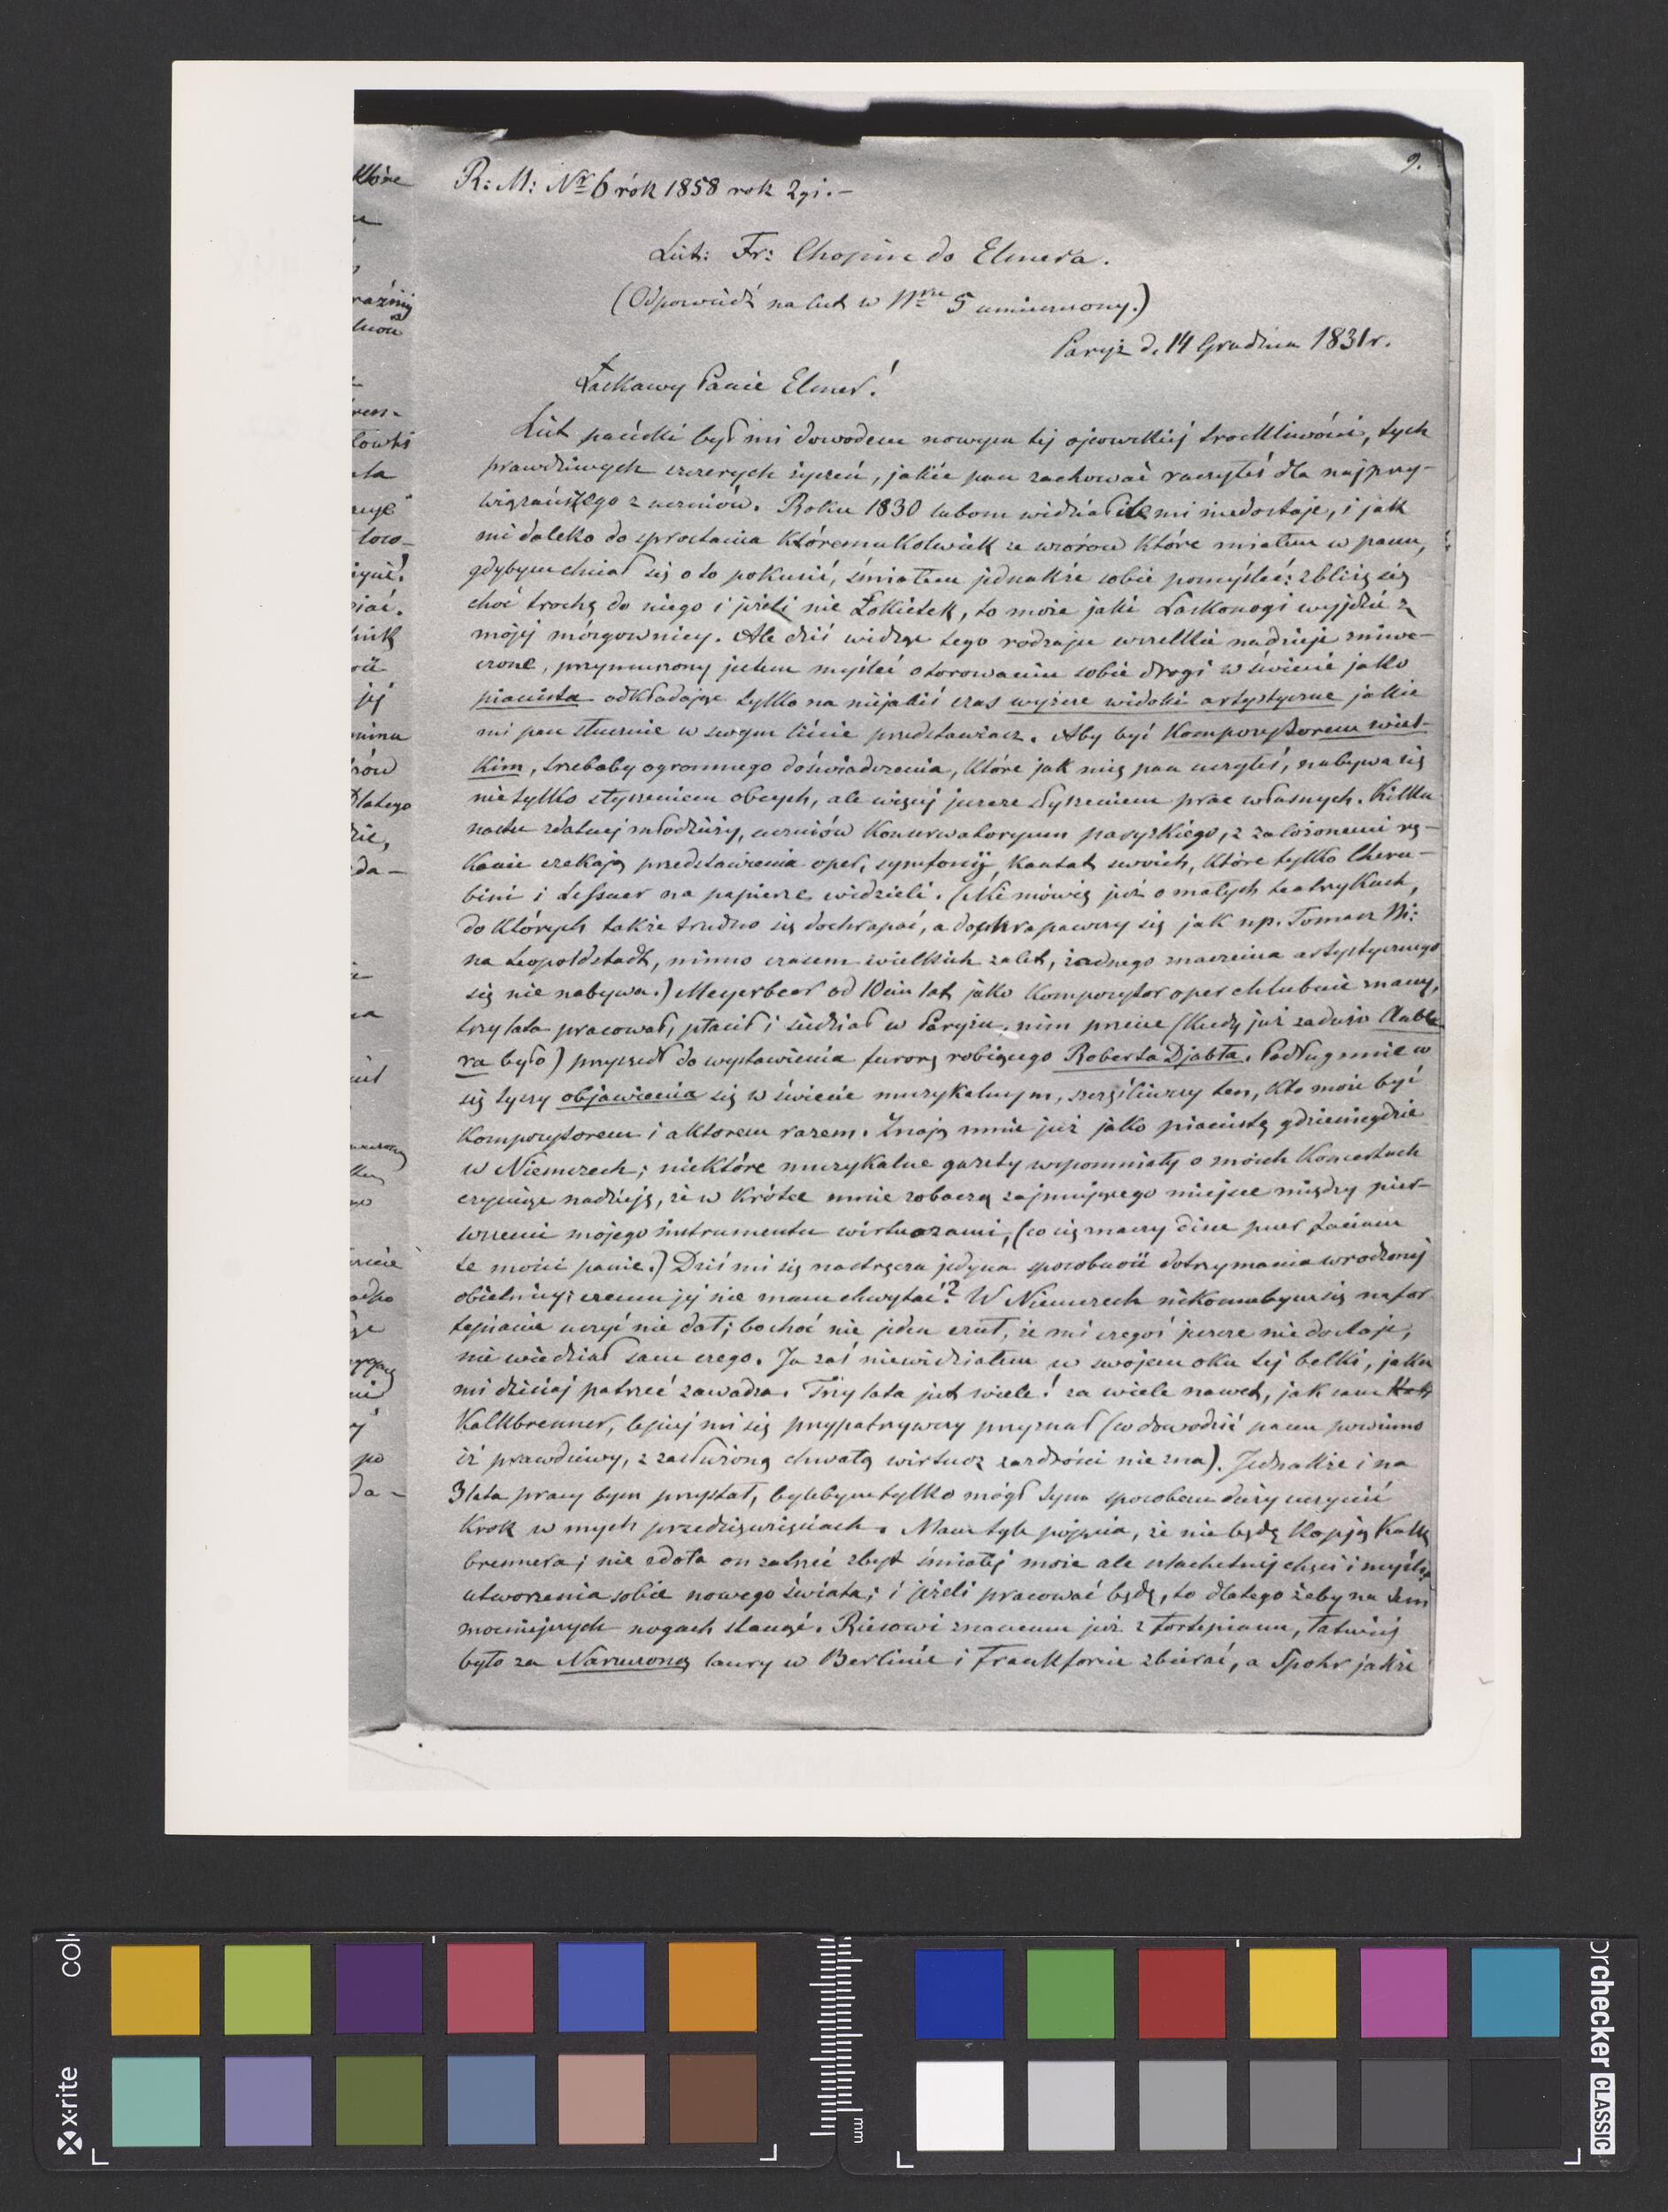 9.
R: M: Nr 6 rók 1858 rok 2gi.—
List: Fr: Chopine do Elsnera.
(Odpowiedź na list w Nrze 5 umieszczony.)
Paryż d. 14 Grudnia 1831 r.
Łaskawy Panie Elsner!
List pański był mi dowodem nowym tej ojcowskiej troskliwości, tych
prawdziwych szczerych życzeń, jakie pan zachować raczyłeś dla najprzy-
wiązańszego z uczniów. Roku 1830 lubom widział ile mi niedostaje, i jak
mi daleko do sprostania któremukolwiek ze wzorów które miałem w panu,
gdybym chciał się o to pokusić, śmiałem jednakże sobie pomyśleć: zbliżę się
choć trochę do niego i jeżeli nie Łokietek, to może jaki Laskonogi wyjdzie z
mojej mózgownicy. Ale dziś widząc tego rodzaju wszelkie nadzieje zniwe-
czone, przymuszony jestem myśleć o torowaniu sobie drogi w świecie jako
pianista odkładając tylko na niejakiś czas wyższe widoki artystyczne jakie
mi pan słusznie w swym liście przedstawiasz. Aby być kompozytorem wiel-
kim, trzebaby ogromnego doświadczenia, które jak mię pan uczyłeś, nabywa się
nie tylko słyszeniem obcych, ale więcej jeszcze słyszeniem prac własnych. Kilku
nastu zdatnej młodzieży, uczniów konserwatoryum paryzkiego, z założonemi rę-
kami czekają przedstawienia oper, symfonij, kantat swoich, które tylko Cheru-
bini i Lessuer na papierze widzieli. (Nie mówię już o małych teatrzykach,
do których także trudno się dochrapać, a dochrapawszy się jak np. Tomasz Ni:
na Leopoldstadt, mimo czasem wielkich zalet, żadnego znaczenia artystycznego
się nie nabywa.) Meyerbeer od 10ciu lat jako kompozytor oper chlubnie znany,
trzy lata pracował, płacił i siedział w Paryżu, nim przecie (kiedy już zadużo Aube
ra było) przyszedł do wystawienia furorę robiącego Roberta Djabła. Podług mnie co
się tyczy objawienia się w świecie muzykalnym, szczęśliwszy ten, kto może być
kompozytorem i aktorem razem. Znają mnie już jako pianistę gdzieniegdzie
w Niemczech; niektóre muzykalne gazety wspomniały o moich koncertach
czyniąc nadzieję, że w krótce mnie zobaczą zajmującego miejsce między pier-
wszemi mojego instrumentu wirtuozami, (co się znaczy disce puer faciam
te mości panie.) Dziś mi się nastręcza jedyna sposobność dotrzymania wrodzonej
obietnicy; czemu jej nie mam chwytać? W Niemczech nikomubym się na for
tepianie uczyć nie dał; bo choć nie jeden czuł, że mi czegoś jeszcze nie dostaje,
nie wiedział sam czego. Ja zaś niewidziałem w swojem oku tej belki, jaka
mi dzisiaj patrzeć zawadza. Trzy lata jest wiele! za wiele nawet, jak sam Kalk
Kalkbrenner, lepiej mi się przypatrzywszy przyznał (co dowodzić panu powinno
iż prawdziwy, z zasłużoną chwałą wirtuoz zazdrości nie zna). Jednakże i na
3 lata pracy bym przystał, bylebym tylko mógł tym sposobem duży uczynić
krok w mych przedsięwzięciach. Mam tyle pojęcia, że nie będę kopją Kalk
brennera; nie zdoła on zatrzeć zbyt śmiałej może ale szlachetnej chęci i myśli
utworzenia sobie nowego świata; i jeżeli pracować będę, to dlatego żeby na tem
mocniejszych nogach stanąć. Riesowi znanemu już z fortepianu, łatwiej
było za Narzeczoną laury w Berlinie i Frankforcie zbierać, a Spohr jakże
x-rite
mm
colorchecker CLASSIC